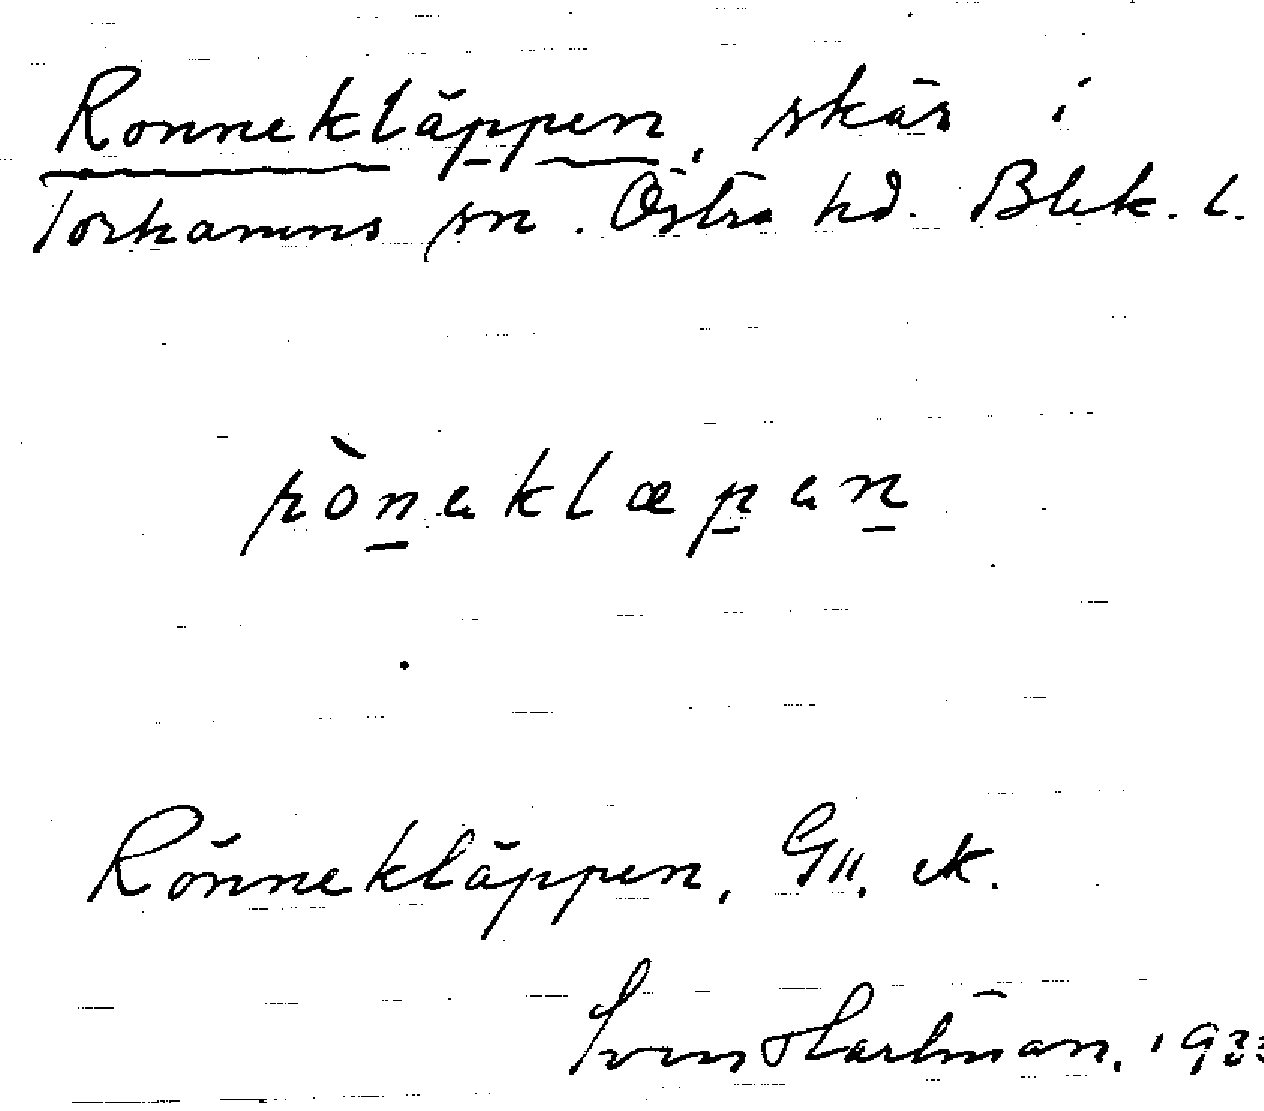 Ronnekläppen, skär i
Torhamns sn. Östra hd. Blek. l.
ròneklæpen
Rönnekläppen, G11. ek.
Sven Hartman, 1933